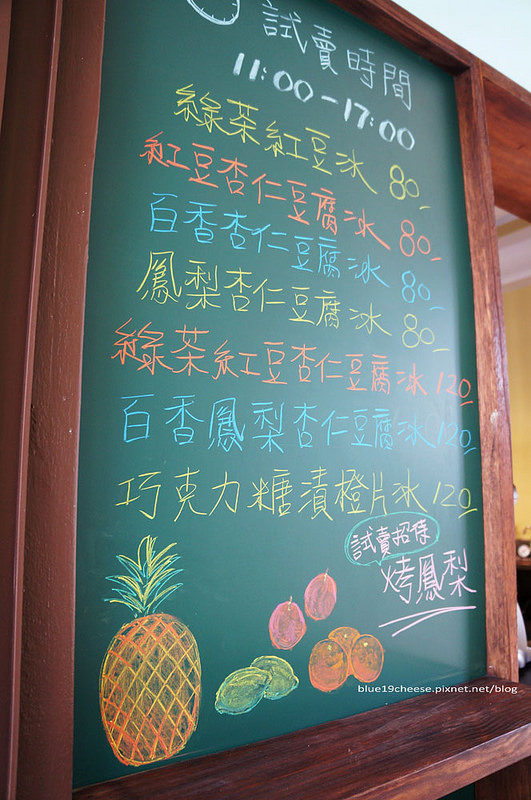 試賣時間
11:00-17:00
綠茶紅豆冰 80-
紅豆杏仁豆腐冰 80-
百香杏仁豆腐冰 80-
鳳梨杏仁豆腐冰 80-
綠茶紅豆杏仁豆腐冰 120
百香鳳梨杏仁豆腐冰 120
巧克力糖漬橙片冰 120
試賣招待
烤鳳梨
blue19cheese.pixnet.net/blog